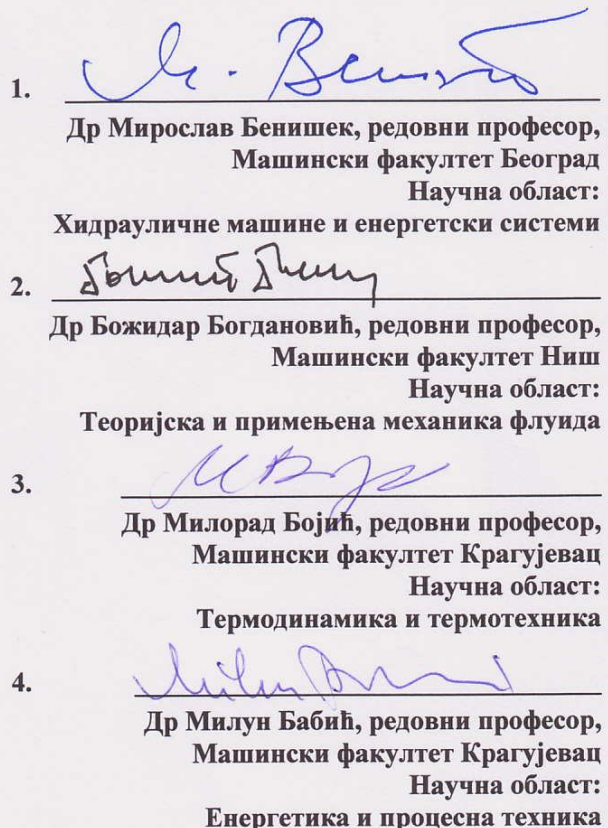 1.
Др Мирослав Бенишек, редовни професор,
Машински факултет Београд
Научна област:
Хидрауличне машине и енергетски системи
2.
Др Божидар Богдановић, редовни професор,
Машински факултет Ниш
Научна област:
Теоријска и примењена механика флуида
3.
Др Милорад Бојић, редовни професор,
Машински факултет Крагујевац
Научна област:
Термодинамика и термотехника
4.
Др Милун Бабић, редовни професор,
Машински факултет Крагујевац
Научна област:
Енергетика и процесна техника